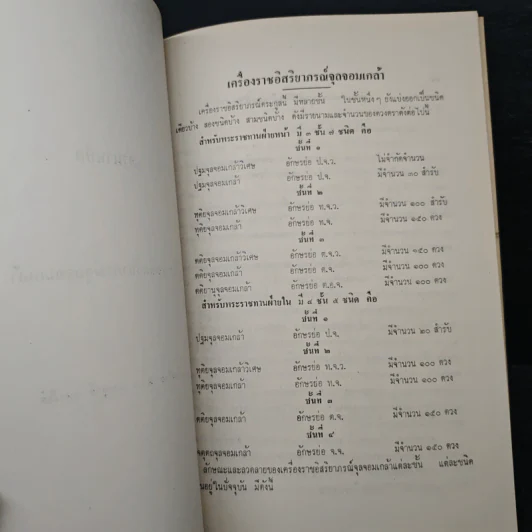 เครื่องราชอิสริยาภรณ์จุลจอมเกล้า
เครื่องราชอิสริยาภรณ์ตระกูลนี้ มีหลายชั้น ในชั้นหนึ่ง ๆ ยังแบ่งออกเป็นชนิด
เดียวบ้าง สองชนิดบ้าง สามชนิดบ้าง ดังมีรายนามและจำนวนของดวงตราดังต่อไปนี้
สำหรับพระราชทานฝ่ายหน้า มี ๓ ชั้น ๗ ชนิด คือ
ชั้นที่ ๑
ปฐมจุลจอมเกล้าวิเศษ อักษรย่อ ป.จ.ว. ไม่จำกัดจำนวน
ปฐมจุลจอมเกล้า อักษรย่อ ป.จ. มีจำนวน ๓๐ สำรับ
ชั้นที่ ๒
ทุติยจุลจอมเกล้าวิเศษ อักษรย่อ ท.จ.ว. มีจำนวน ๑๐๐ สำรับ
ทุติยจุลจอมเกล้า อักษรย่อ ท.จ. มีจำนวน ๑๕๐ ดวง
ชั้นที่ ๓
ตติยจุลจอมเกล้าวิเศษ อักษรย่อ ต.จ.ว. มีจำนวน ๑๕๐ ดวง
ตติยจุลจอมเกล้า อักษรย่อ ต.จ. มีจำนวน ๑๐๐ ดวง
ตติยานุจุลจอมเกล้า อักษรย่อ ต.อ.จ. มีจำนวน ๑๐๐ ดวง
สำหรับพระราชทานฝ่ายใน มี ๔ ชั้น ๕ ชนิด คือ
ชั้นที่ ๑
ปฐมจุลจอมเกล้า อักษรย่อ ป.จ. มีจำนวน ๒๐ สำรับ
ชั้นที่ ๒
ทุติยจุลจอมเกล้าวิเศษ อักษรย่อ ท.จ.ว. มีจำนวน ๑๐๐ ดวง
ทุติยจุลจอมเกล้า อักษรย่อ ท.จ. มีจำนวน ๑๐๐ ดวง
ชั้นที่ ๓
ตติยจุลจอมเกล้า อักษรย่อ ต.จ. มีจำนวน ๑๕๐ ดวง
ชั้นที่ ๔
จตุตถจุลจอมเกล้า อักษรย่อ จ.จ. มีจำนวน ๑๕๐ ดวง
ลักษณะและลวดลายของเครื่องราชอิสริยาภรณ์จุลจอมเกล้าแต่ละชั้น แต่ละชนิด
อยู่ในปัจจุบัน มีดังนี้